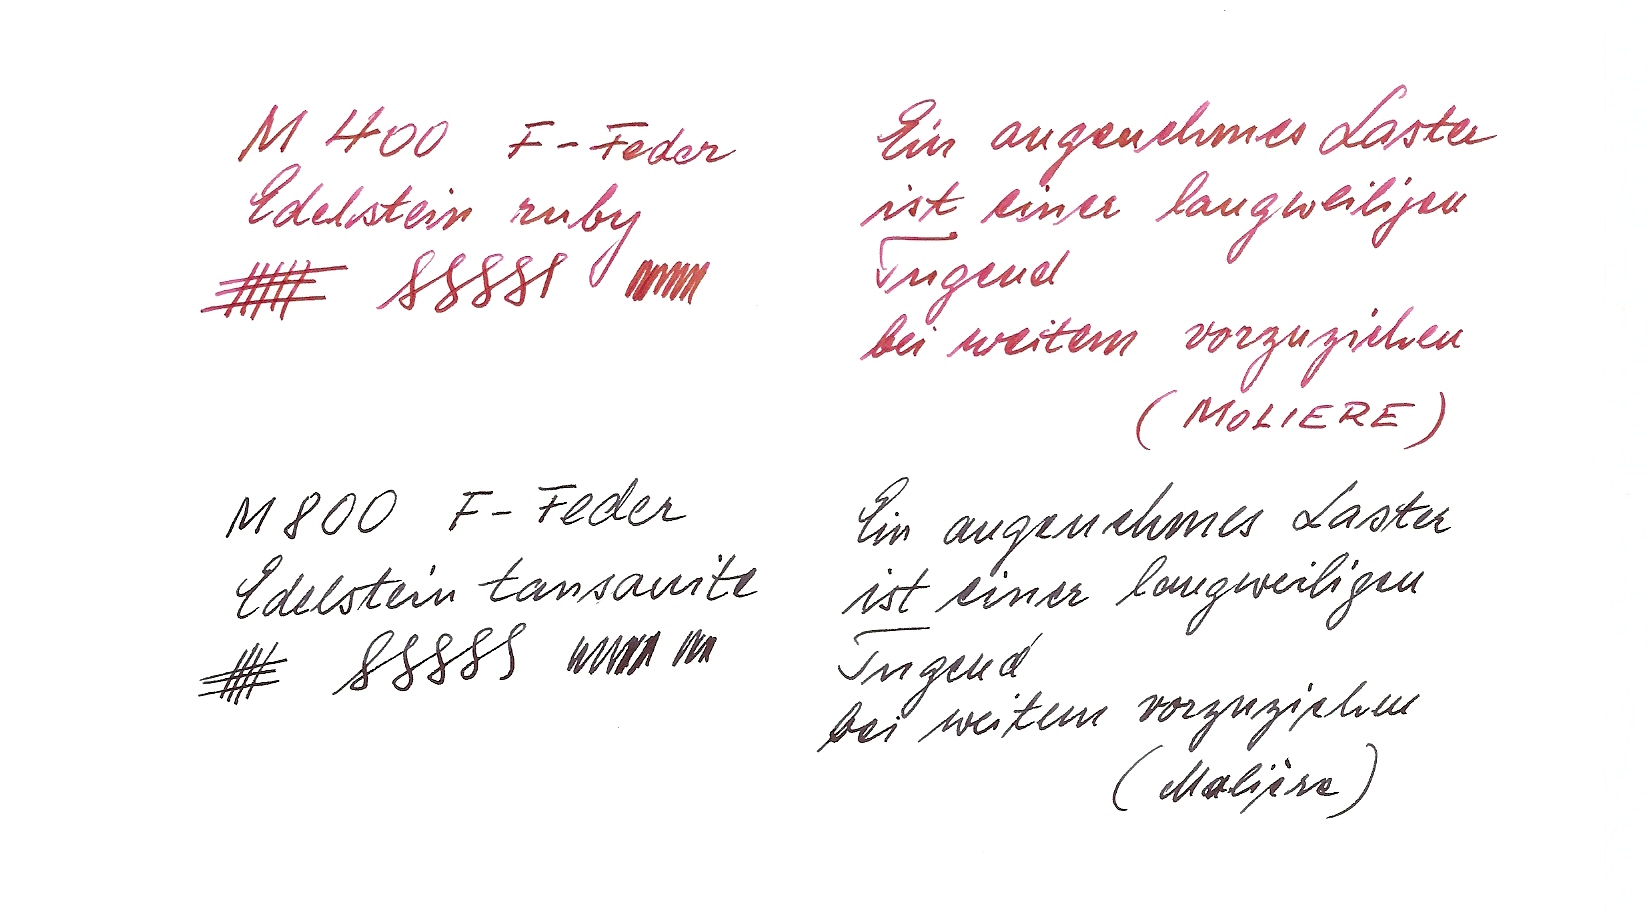 M 400 F-Feder
Edelstein ruby
Ein angenehmes Laster
ist einer langweiligen
Tugend
bei weitem vorzuziehen
(MOLIERE)
M 800 F-Feder
Edelstein tansanite
Ein angenehmes Laster
ist einer langweiligen
Tugend
bei weitem vorzuziehen
(Molière)